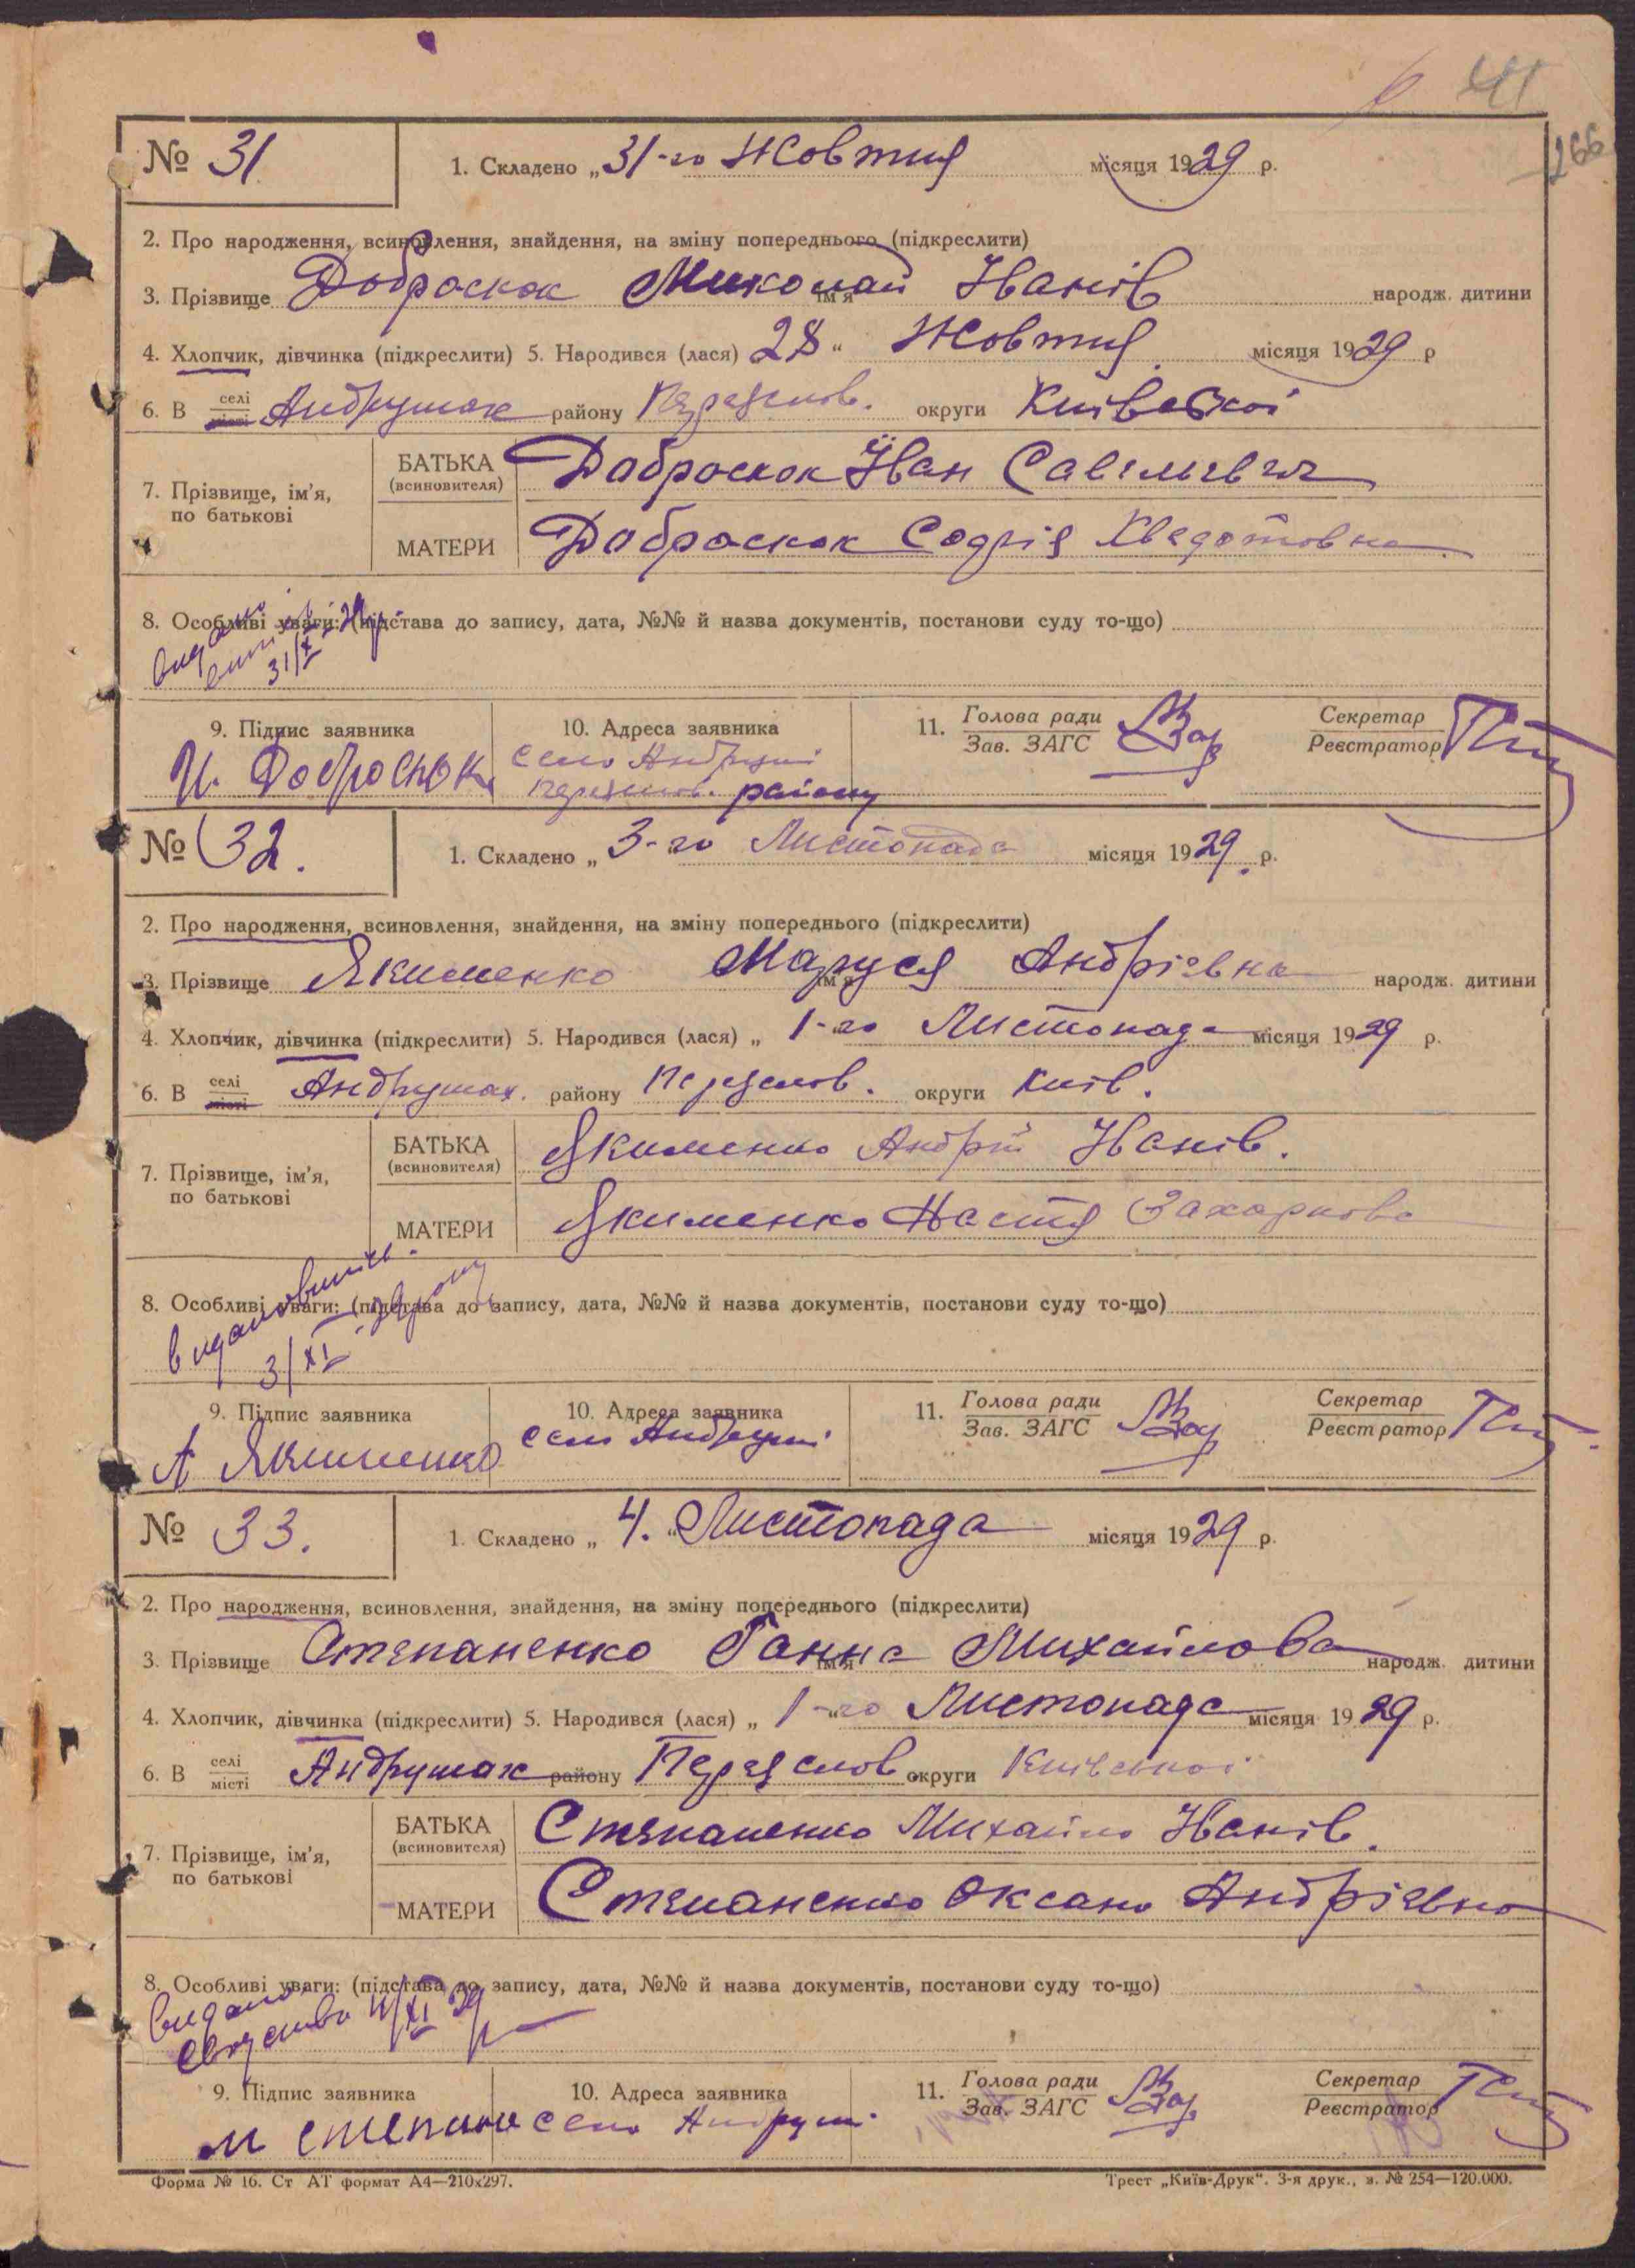 41
266
№ 31
1. Складено „31-го Жовтня місяця 1929 р.
2. Про народження, всиновлення, знайдення, на зміну попереднього (підкреслити)
3. Прізвище Доброскок Миколай Іванів ім'я народж. дитини
4. Хлопчик, дівчинка (підкреслити) 5. Народився (лася) 28 “ Жовтня місяця 1929 р
6. В селі місті Андрушах району Переяслов. округи Київської
7. Прізвище, ім'я, по батькові
БАТЬКА (всиновителя) Доброскок Йван Савельевич
МАТЕРИ Доброскок Софія Хведотовна
8. Особливі уваги: (підстава до запису, дата, №№ й назва документів, постанови суду то-що)
видано 31/X 29р
9. Підпис заявника
И. Доброскок
10. Адреса заявника
село Андруші
Переяслов. району
11. Голова ради
Зав. ЗАГС
Секретар
Реєстратор
№ 32.
1. Складено „ 3-го Листопада місяця 1929 р.
2. Про народження, всиновлення, знайдення, на зміну попереднього (підкреслити)
3. Прізвище Якименко Маруся Андріевна ім'я народж. дитини
4. Хлопчик, дівчинка (підкреслити) 5. Народився (лася) „ 1-го Листопада місяця 1929 р.
6. В селі місті Андрушах. району Переяслов. округи Київ.
7. Прізвище, ім'я, по батькові
БАТЬКА (всиновителя) Якименко Андрій Іванів.
МАТЕРИ Якименко Настя Захаркова
8. Особливі уваги: (підстава до запису, дата, №№ й назва документів, постанови суду то-що)
видано випись.
3/XI 29 року
9. Підпис заявника
А Якименко
10. Адреса заявника
село Андруші
11. Голова ради
Зав. ЗАГС
Секретар
Реєстратор
№ 33.
1. Складено „ 4. “ Листопада місяця 1929 р.
2. Про народження, всиновлення, знайдення, на зміну попереднього (підкреслити)
3. Прізвище Степаненко Ганна Михайлова ім'я народж. дитини
4. Хлопчик, дівчинка (підкреслити) 5. Народився (лася) „ 1-го Листопада місяця 1929 р.
6. В селі місті Андрушах району Переяслов округи Київської
7. Прізвище, ім'я, по батькові
БАТЬКА (всиновителя) Степаненко Михайло Іванів.
МАТЕРИ Степаненко Оксана Андріевна
8. Особливі уваги: (підстава до запису, дата, №№ й назва документів, постанови суду то-що)
видано
свідоцтво 4/XI 29 р
9. Підпис заявника
м степане
10. Адреса заявника
село Андруши
11. Голова ради
Зав. ЗАГС
Секретар
Реєстратор
Форма № 16. Ст АТ формат А4—210х297.
Трест „Київ-Друк“. 3-я друк., з. № 254—120.000.